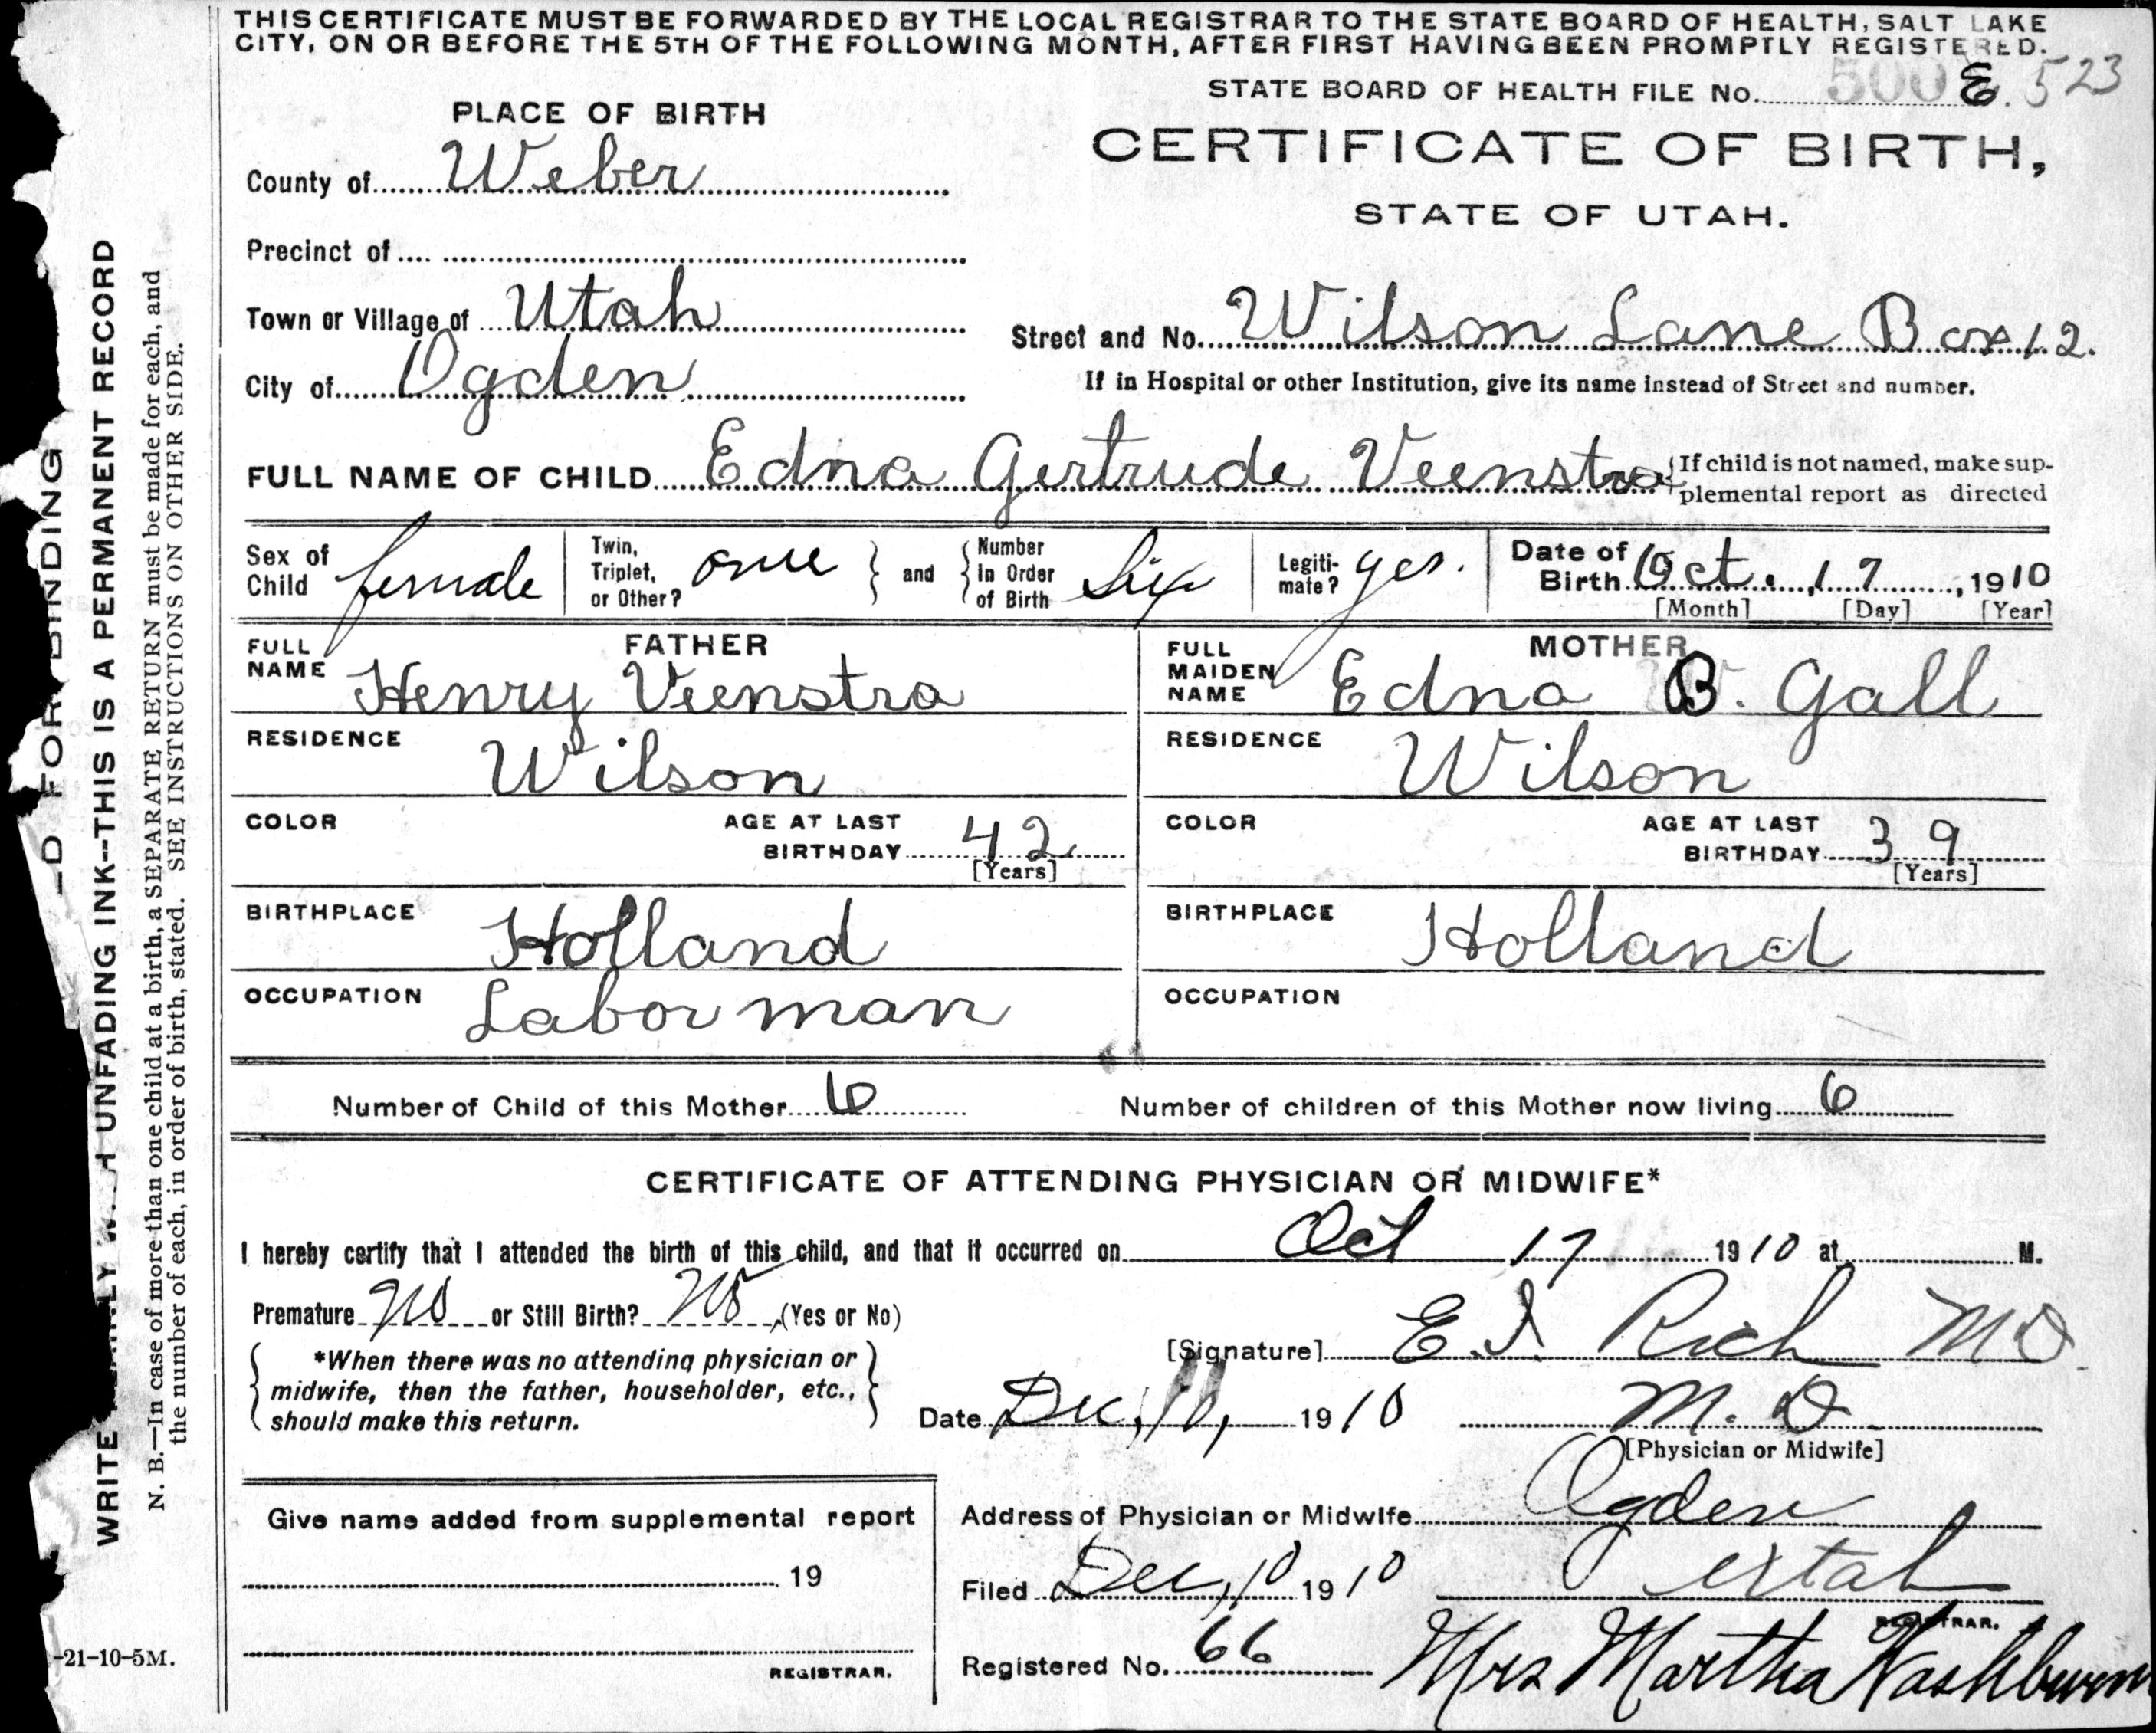 THIS CERTIFICATE MUST BE FORWARDED BY THE LOCAL REGISTRAR TO THE STATE BOARD OF HEALTH, SALT LAKE
CITY, ON OR BEFORE THE 5TH OF THE FOLLOWING MONTH, AFTER FIRST HAVING BEEN PROMPTLY REGISTERED.
STATE BOARD OF HEALTH FILE No. 500 E. 523
PLACE OF BIRTH
CERTIFICATE OF BIRTH,
STATE OF UTAH.
County of Weber
Precinct of
Town or Village of Utah
Street and No. Wilson Lane Box 12.
City of Ogden
If in Hospital or other Institution, give its name instead of Street and number.
FULL NAME OF CHILD Edna Gertrude Veenstra {If child is not named, make sup-
plemental report as directed
Sex of Child female
Twin, Triplet, or Other? one } and { Number in Order of Birth Six
Legiti-mate? yes.
Date of Birth Oct. 17, 1910
[Month] [Day] [Year]
FATHER
FULL NAME Henry Veenstra
RESIDENCE Wilson
COLOR
AGE AT LAST BIRTHDAY 42
[Years]
BIRTHPLACE Holland
OCCUPATION Labor man
MOTHER
FULL MAIDEN NAME Edna B. Gall
RESIDENCE Wilson
COLOR
AGE AT LAST BIRTHDAY 39
[Years]
BIRTHPLACE Holland
OCCUPATION
Number of Child of this Mother 6
Number of children of this Mother now living 6
CERTIFICATE OF ATTENDING PHYSICIAN OR MIDWIFE*
I hereby certify that I attended the birth of this child, and that it occurred on Oct 17 1910 at M.
Premature no or Still Birth? no (Yes or No)
*When there was no attending physician or
midwife, then the father, householder, etc.,
should make this return.
[Signature] E. I. Rich MD.
Date Dec, 10, 1910
M. D
[Physician or Midwife]
Give name added from supplemental report
19
REGISTRAR.
Address of Physician or Midwife Ogden
Utah
Filed Dec, 10 1910
REGISTRAR.
Registered No. 66
Mrs Martha Washburn
-D FOR BINDING
WRITE UNFADING INK--THIS IS A PERMANENT RECORD
N. B.—In case of more than one child at a birth, a SEPARATE RETURN must be made for each, and
the number of each, in order of birth, stated. SEE INSTRUCTIONS ON OTHER SIDE.
-21-10-5M.